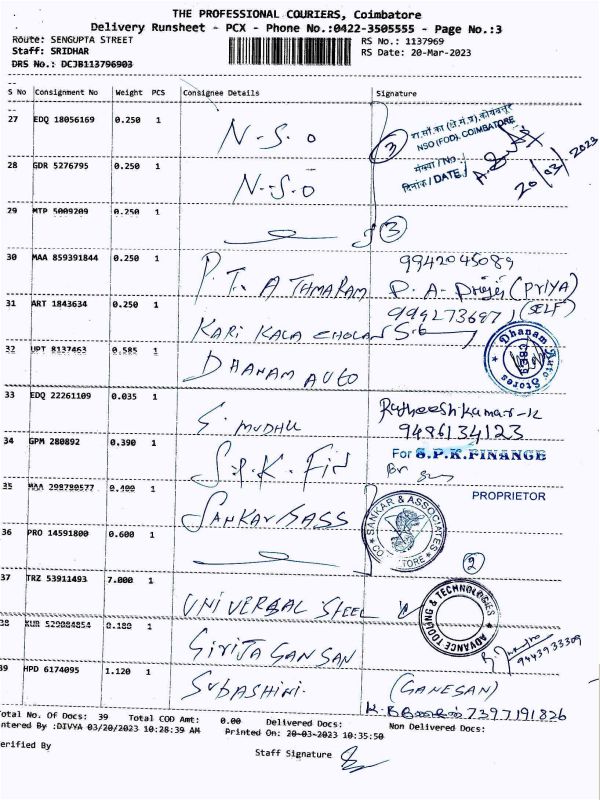 THE PROFESSIONAL COURIERS, Coimbatore
Delivery Runsheet - PCX - Phone No.:0422-3505555 - Page No.:3
Route: SENGUPTA STREET
RS No.: 1137969
Staff: SRIDHAR
RS Date: 20-Mar-2023
DRS No.: DCJB113796903
S No Consignment No Weight PCS Consignee Details Signature
27 EDQ 18056169 0.250 1
N-S.O
3
NSO (FOD), COIMBATORE
संख्या / No.
दिनांक / DATE
20/03/2023
28 GDR 5276795 0.250 1
N-S-O
29 MTP 5009209 0.250 1
3
30 MAA 859391844 0.250 1
9942045089
P. T. ATHMARAM P. A- (PRIYA)
31 ART 1843634 0.250 1
(SELF)
KARI KALA CHOLAN
32 UPT 8137463 0.585 1
DHANAM AUTO
Dhanam Auto Stores
33 EDQ 22261109 0.035 1
S. MUDHU
Rajheeshkumar-K
9486134123
34 GPM 280892 0.390 1
S.P.K. Fin
For S.P.K.FINANCE
PROPRIETOR
35 MAA 298780577 0.400 1
SANKAR & ASSOCIATES
36 PRO 14591800 0.600 1
2
37 TRZ 53911493 7.000 1
UNIVERSAL STEEL
ADVANCE TOOLING & TECHNOLOGIES
38 KUR 529084854 0.180 1
GIRIJA GANSAN
9443933309
39 HPD 6174095 1.120 1
SUBASHINI.
(GANESAN)
7397191826
Total No. Of Docs: 39 Total COD Amt: 0.00 Delivered Docs: Non Delivered Docs:
Entered By :DIVYA 03/20/2023 10:28:39 AM Printed On: 20-03-2023 10:35:50
Verified By
Staff Signature